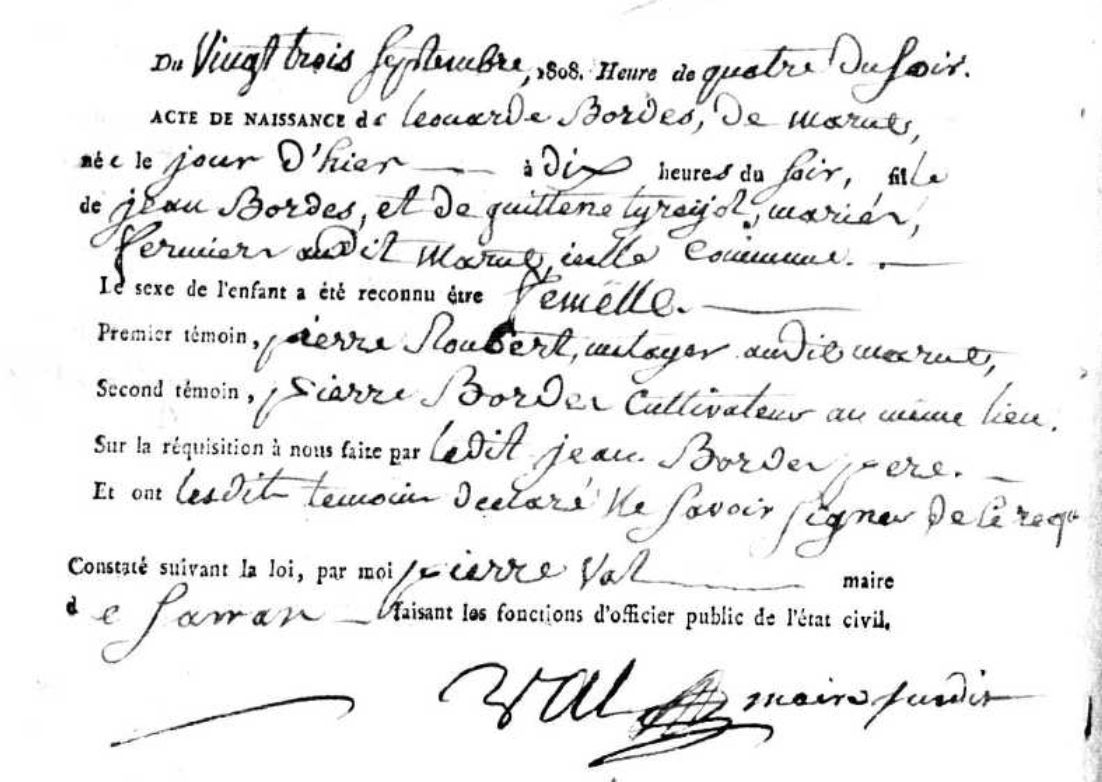 Du Vingt trois Septembre, 1808. Heure de quatre Du Soir.
ACTE DE NAISSANCE de leonarde Bordes, De
née le jour D'hier — à Dix heures du soir, fille
de jean Bordes, et De mariés,
fermiers audit Commune. —
Le sexe de l'enfant a été reconnu être femelle. —
Premier témoin, pierre audit
Second témoin, pierre Bordes Cultivateur au même lieu.
Sur la réquisition à nous faite par ledit jean Bordes pere. —
Et ont lesdit temoins declaré Ne Savoir Signer De Ce req
Constaté suivant la loi, par moi pierre Val — maire
de Sarran — faisant les fonctions d'officier public de l'état civil.
VAL maire susdit